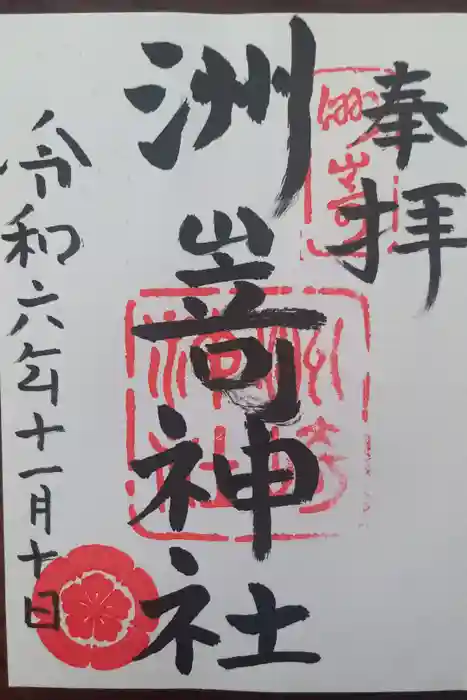 奉拝
洲嵜神社
令和六年十一月十日